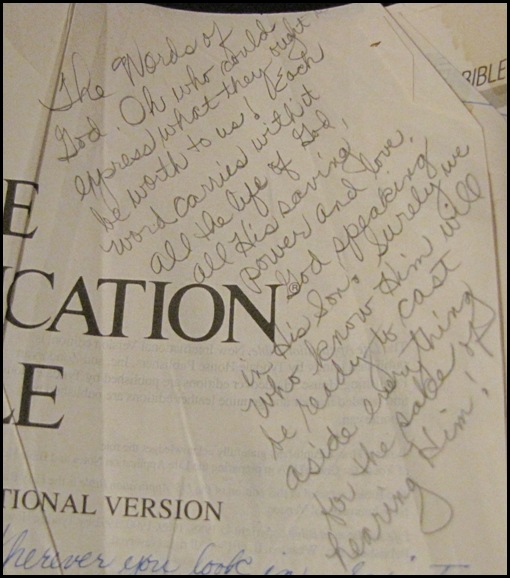 The Words of
God! Oh who could
express what they ought
be worth to us! Each
word carries with it
all the life of God,
all His saving
power and love.
God speaking
in His Son. Surely we
who know Him will
be ready to cast
aside everything
for the sake of
hearing Him!
BIBLE
E
CATION®
LE
TIONAL VERSION
Wherever you look in